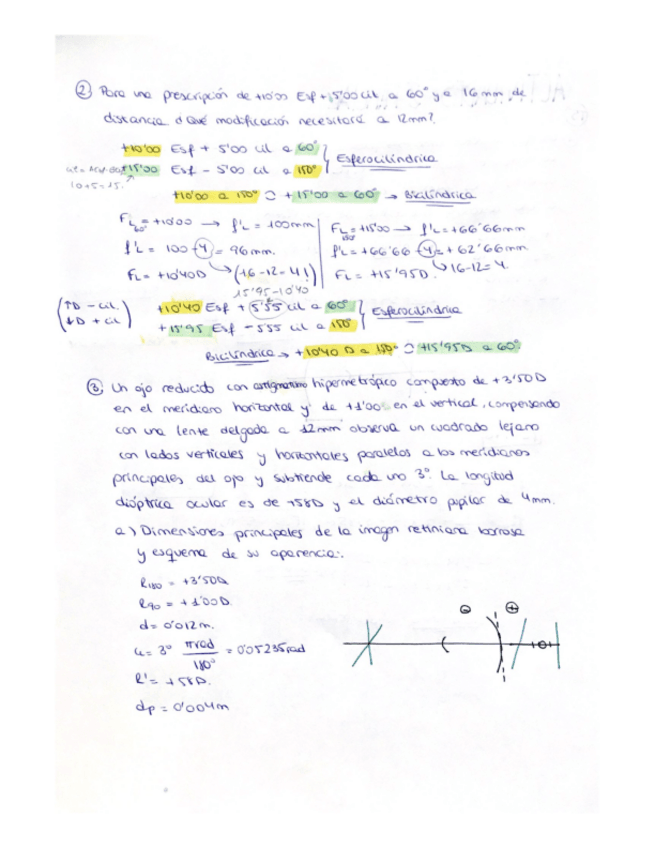 ② Para una prescripción de +10'00 Esf + 5'00 cil a 60° y a 16 mm de
distancia ¿Qué modificación necesitará a 12mm?
+10'00 Esf + 5'00 cil a 60°
+15'00 Esf - 5'00 cil a 150°
Esferocilíndrica
10+5=15.
+10'00 a 150° ⊃ +15'00 a 60° → Bicilíndrica
FL 60° = +10'00 → f'L = 100mm
f'L = 100 - 4 = 96mm.
FL = +10'40D (16-12=4!)
FL 150° = +15'00 → f'L = +66'66mm
f'L = +66'66 - 4 = +62'66mm
FL = +15'95D. 16-12=4.
15'95-10'40
(↑D - cil. ↓D + cil)
+10'40 Esf + 5'55 cil a 60°
+15'95 Esf - 5'55 cil a 150°
Esferocilíndrica
Bicilíndrica → +10'40 D a 150° ⊃ +15'95D a 60°
③ Un ojo reducido con astigmatismo hipermetrópico compuesto de +3'50D
en el meridiano horizontal y de +1'00 en el vertical, compensando
con una lente delgada a 12mm observa un cuadrado lejano
con lados verticales y horizontales paralelos a los meridianos
principales del ojo y subtiende cada uno 3°. La longitud
dióptrica ocular es de +58D y el diámetro pupilar de 4mm.
a) Dimensiones principales de la imagen retiniana borrosa
y esquema de su apariencia.
R180 = +3'50D
R90 = +1'00D.
d = 0'012m.
u = 3° π rad / 180° = 0'05235rad
R' = +58D.
dp = 0'004m